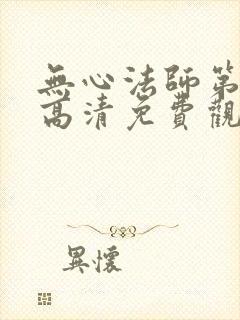 無心法師第
高清免費觀
異懷